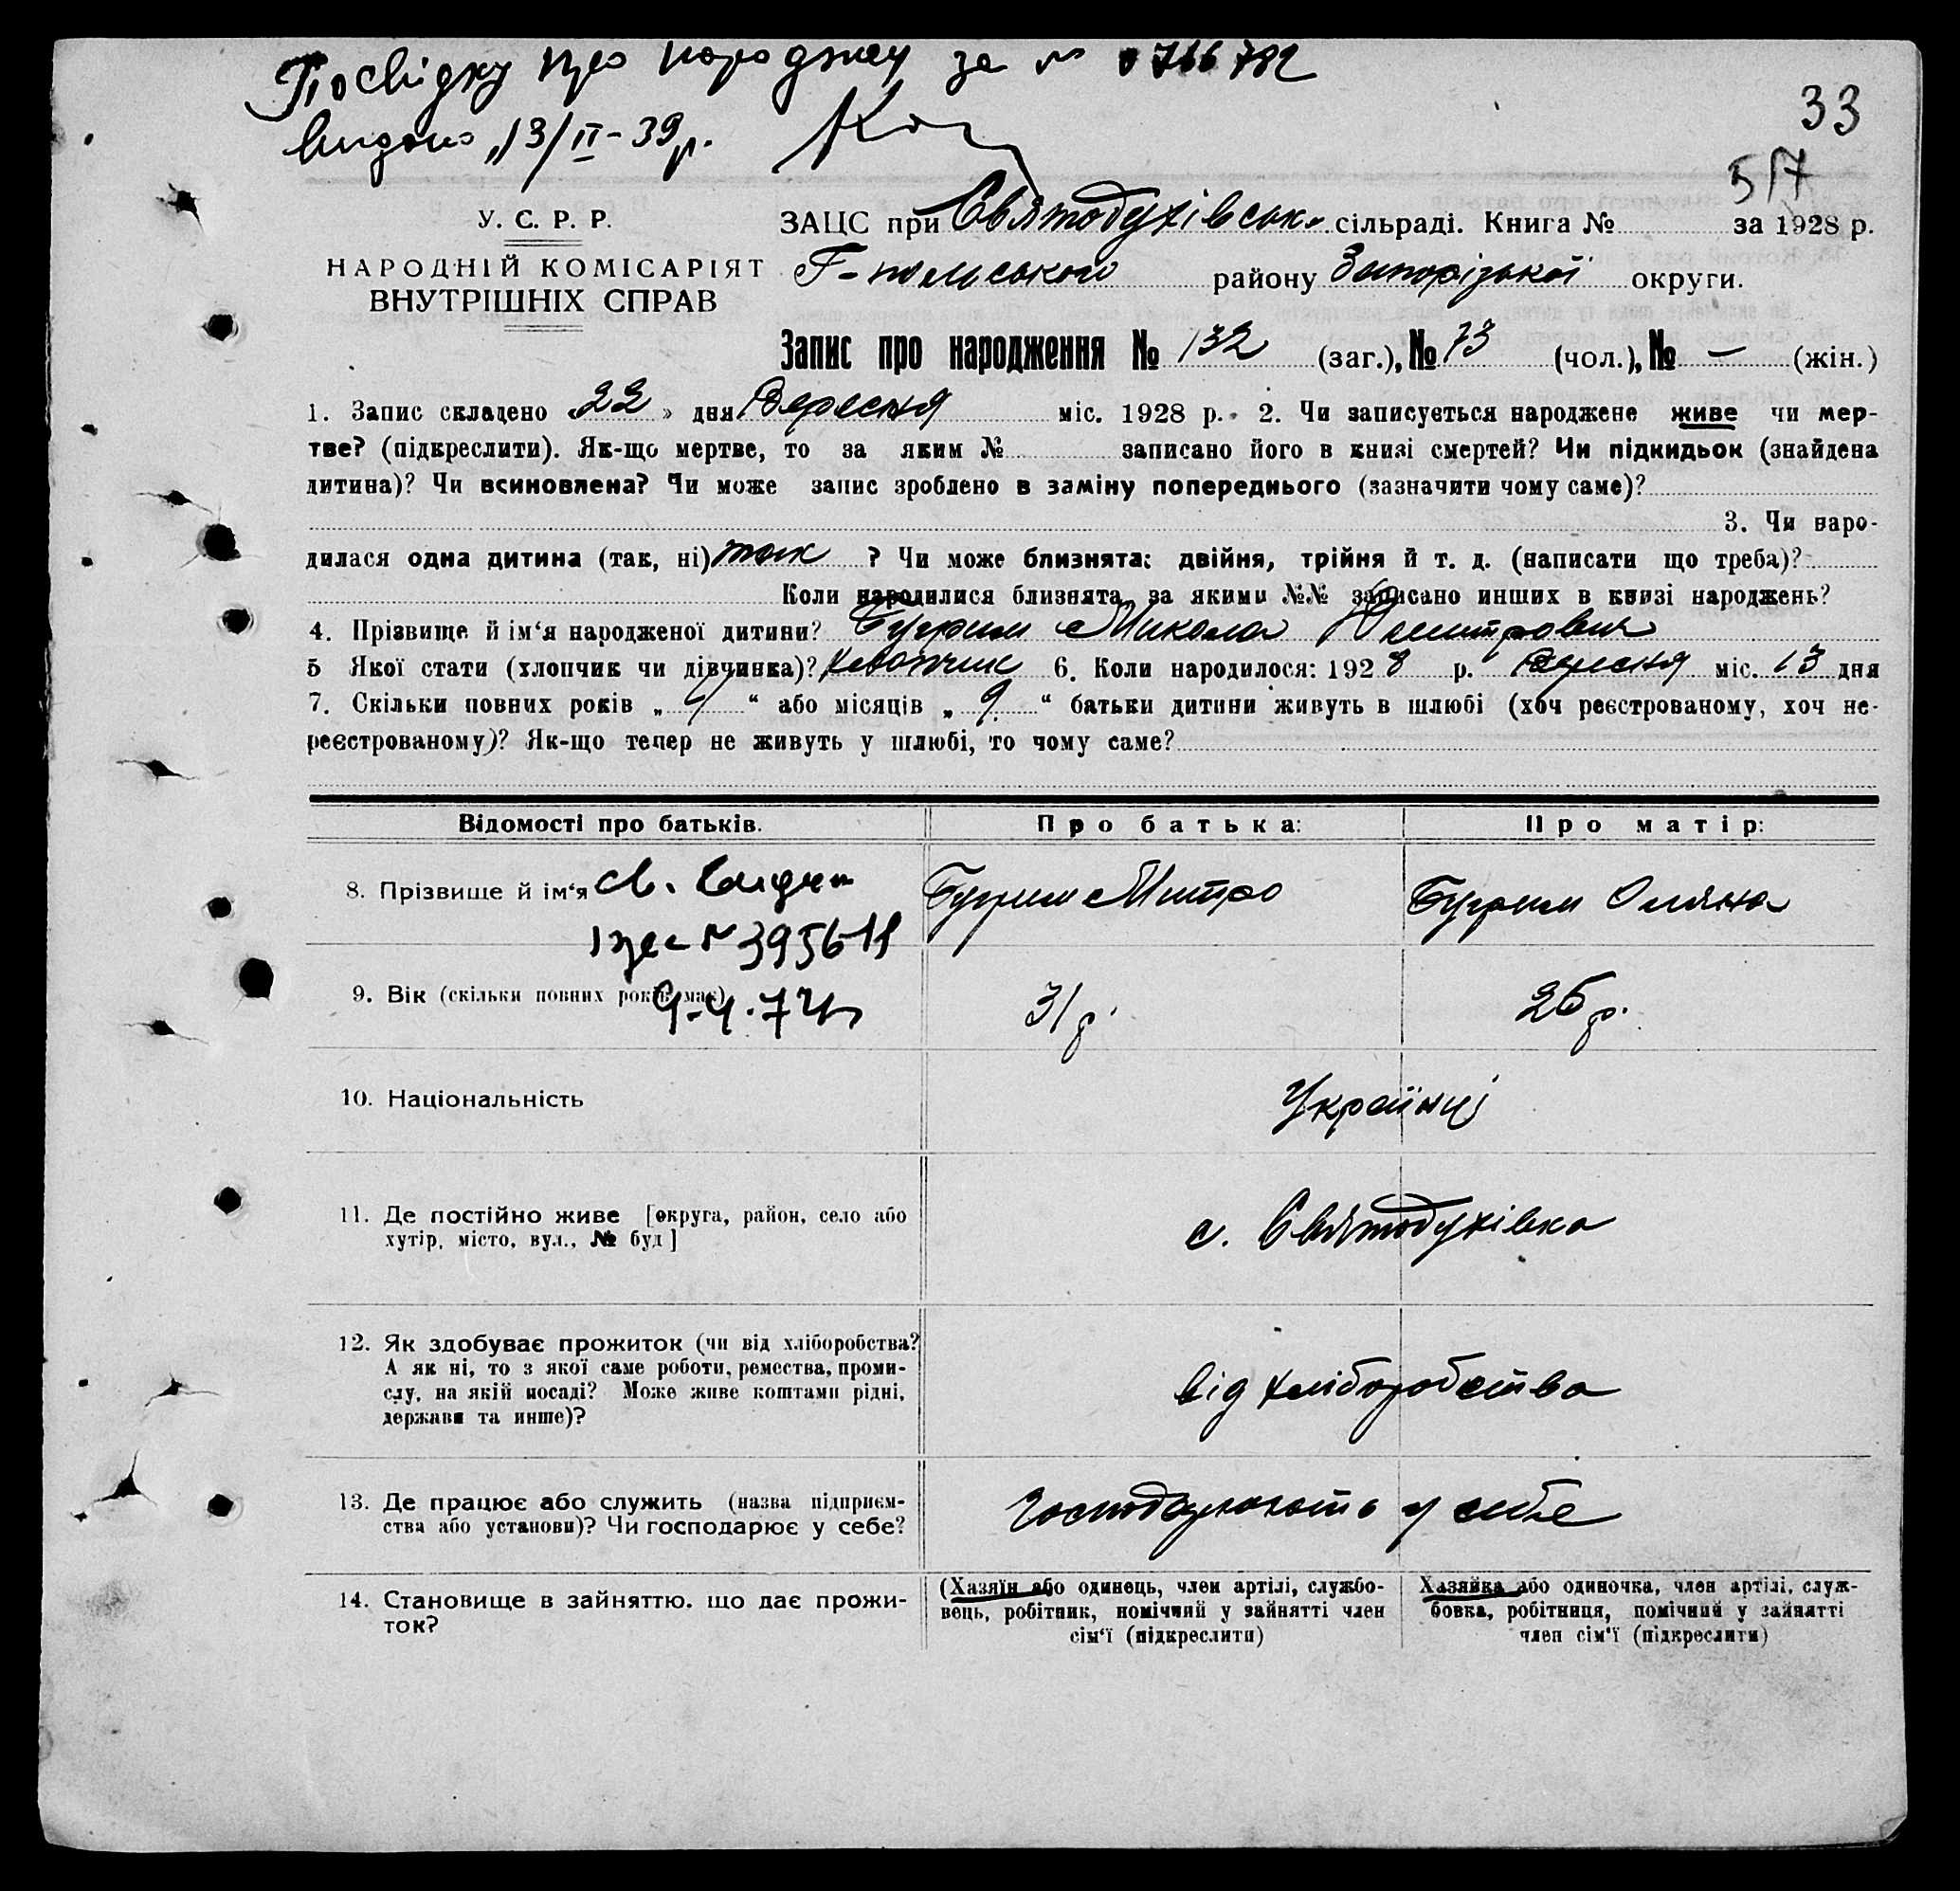 Посвідку про народжен за № 0766782
видано 13/II-39р.
33
517
У. С. Р. Р.
НАРОДНІЙ КОМІСАРІЯТ
ВНУТРІШНІХ СПРАВ
ЗАЦС при Святодухівськ. сільраді. Книга № за 1928 р.
Г-польського району Запорізької округи.
Запис про народження № 132 (заг.), № 73 (чол.), № – (жін.)
1. Запис складено «22» дня Вересня міс. 1928 р. 2. Чи записується народжене живе чи мер-
тве? (підкреслити). Як-що мертве, то за яким № записано його в книзі смертей? Чи підкидьок (знайдена
дитина)? Чи всиновлена? Чи може запис зроблено в заміну попереднього (зазначити чому саме)?
3. Чи наро-
дилася одна дитина (так, ні) так ? Чи може близнята: двійня, трійня й т. д. (написати що треба)?
Коли народилися близнята, за якими №№ записано инших в книзі народжень?
4. Прізвище й ім'я народженої дитини? Бугрим Микола Дмитрович
5 Якої стати (хлопчик чи дівчинка)? хлопчик 6. Коли народилося: 1928 р. Вересня міс. 13 дня
7. Скільки повних років „ “ або місяців „ 9. “ батьки дитини живуть в шлюбі (хоч реєстрованому, хоч не-
реєстрованому)? Як-що тепер не живуть у шлюбі, то чому саме?
Відомості про батьків. Про батька: Про матір:
8. Прізвище й ім'я Бугрим Митро Бугрим Оляна
св.
№ 395611
9. Вік (скільки повних років має) 31 р. 25 р.
10. Національність Українці
11. Де постійно живе [округа, район, село або
хутір, місто, вул., № буд]
с. Святодухівка
12. Як здобуває прожиток (чи від хліборобства?
А як ні, то з якої саме роботи, ремества, проми-
слу, на якій посаді? Може живе коштами рідні,
держави та инше)?
від хліборобства
13. Де працює або служить (назва підприєм-
ства або установи)? Чи господарює у себе?
Господарюють у себе
14. Становище в зайняттю. що дає прожи-
ток?
(Хазяїн або одинець, член артілі, службо-
вець, робітник, помічний у зайнятті член
сім'ї (підкреслити)
Хазяйка або одиночка, член артілі, служ-
бовка, робітниця, помічний у зайнятті
член сім'ї (підкреслити)